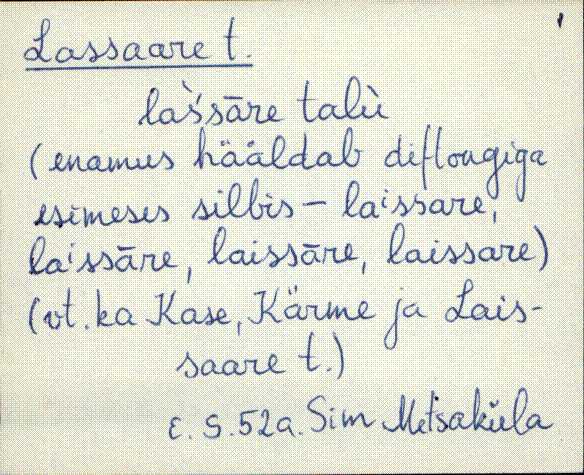 Lassaare t.
las̀'sāre talù
(enamus hääldab diftongiga
esimeses silbis – laⁱssare,
laⁱssāre, laissāre, laissare)
(vt. ka Kase, Kärme ja Lais-
saare t.)
E. S. 52a. Sim Metsaküla